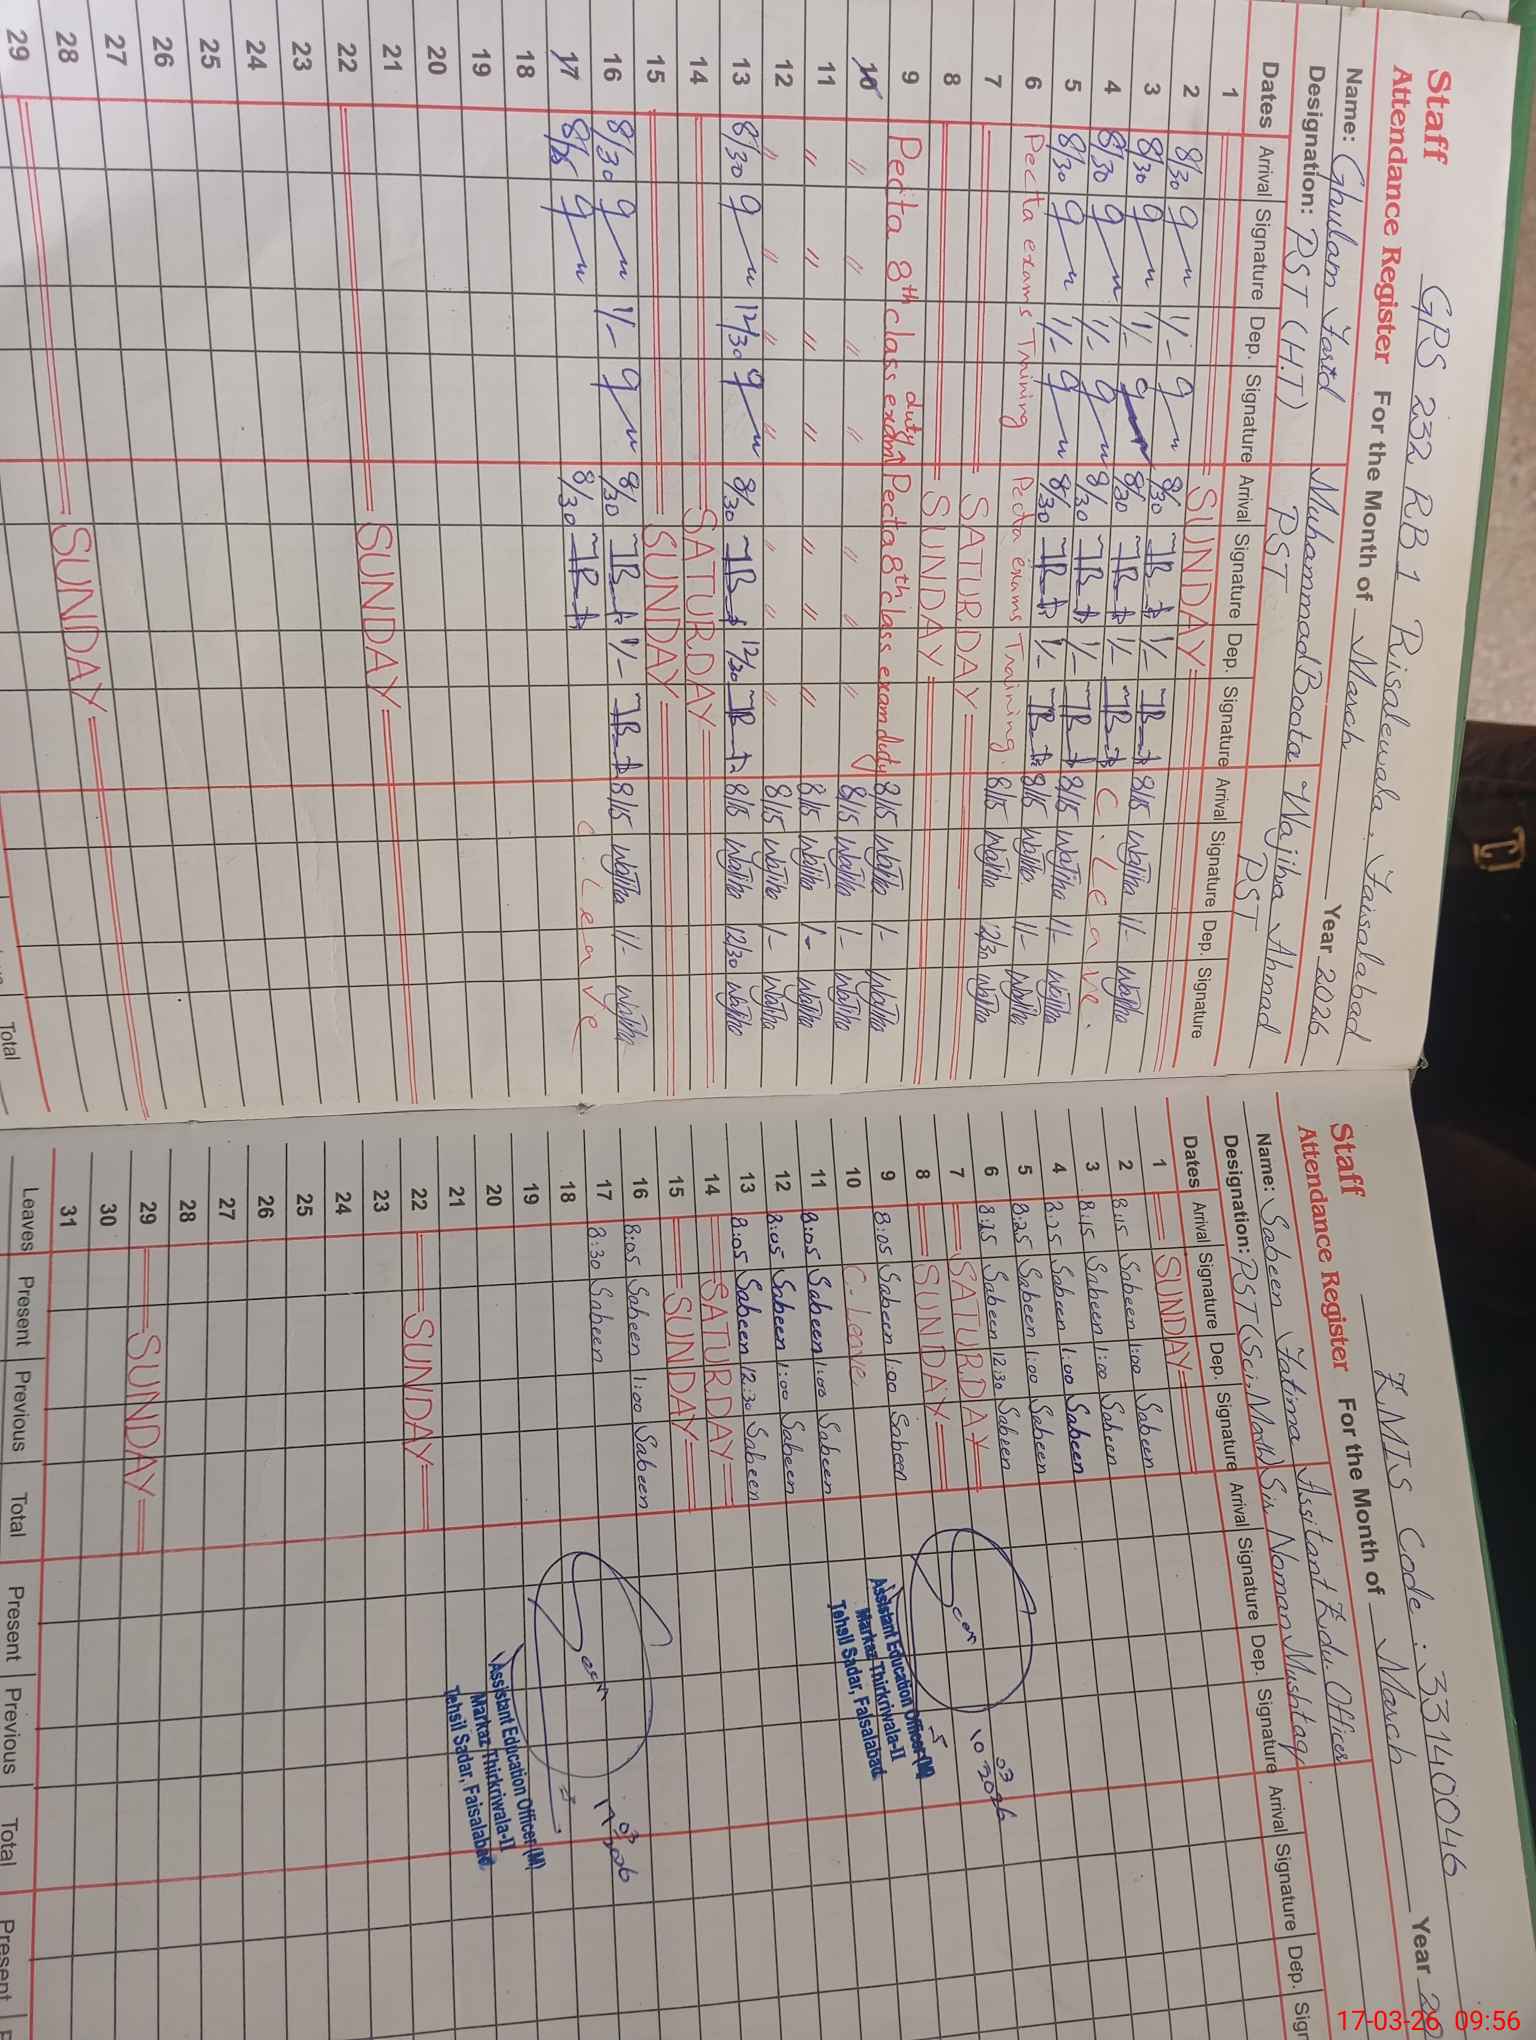 GPS 232 RB 1 Risalewala, Faisalabad
Staff
Attendance Register For the Month of March Year 2026
Name: Ghulam Farid Muhammad Boota Wajiha Ahmad
Designation: PST (H.T) PST PST
Dates Arrival Signature Dep. Signature Arrival Signature Dep. Signature Arrival Signature Dep. Signature
1 SUNDAY
2 8/30 1/- 8/30 1/- 8/15 Wajiha 1/- Wajiha
3 8/30 1/- 8/30 1/- C. Leave.
4 8/30 1/- 8/30 1/- 8/15 Wajiha 1/- Wajiha
5 8/30 1/- 8/30 1/- 8/15 Wajiha 1/- Wajiha
6 Pecta exams Training Pecta exams Training. 8/15 Wajiha 12/30 Wajiha
7 SATURDAY
8 SUNDAY
9 Pecta 8th class exam duty Pecta 8th class exam duty 8/15 Wajiha 1/- Wajiha
10 〃 〃 〃 〃 〃 〃 〃 8/15 Wajiha 1/- Wajiha
11 〃 〃 〃 〃 〃 〃 〃 8/15 Wajiha 1- Wajiha
12 〃 〃 〃 〃 〃 〃 〃 8/15 Wajiha 1- Wajiha
13 8/30 12/30 8/30 12/30 8/15 Wajiha 12/30 Wajiha
14 SATURDAY
15 SUNDAY
16 8/30 1/- 8/30 1/- 8/15 Wajiha 1/- Wajiha
17 8/30 C. Leave
18
19
20
21
22 SUNDAY
23
24
25
26
27
28
29 SUNDAY
Total
EMIS Code: 33140046
Staff
Attendance Register For the Month of March Year
Name: Sabeen Fatima Assitant Edu. Officer
Designation: PST (Sci. Math) Sir Noman Mushtaq
Dates Arrival Signature Dep. Signature Arrival Signature Dep. Signature Arrival Signature Dep.
1 SUNDAY
2 8:15 Sabeen 1:00 Sabeen
3 8:15 Sabeen 1:00 Sabeen
4 8:25 Sabeen 1:00 Sabeen
5 8:25 Sabeen 1:00 Sabeen
6 8:25 Sabeen 12:30 Sabeen
7 SATURDAY
8 SUNDAY
9 8:05 Sabeen 1:00 Sabeen
10 C-Leave
11 8:05 Sabeen 1:00 Sabeen
12 8:05 Sabeen 1:00 Sabeen
13 8:05 Sabeen 12:30 Sabeen
14 SATURDAY
15 SUNDAY
16 8:05 Sabeen 1:00 Sabeen
17 8:30 Sabeen
18
19
20
21
22 SUNDAY
23
24
25
26
27
28
29 SUNDAY
30
31
Leaves Present Previous Total Present Previous Total Present
10 03 2026
Assistant Education Officer (M)
Markaz Thirkriwala-II
Tehsil Sadar, Faisalabad
17 03 2026
Assistant Education Officer (M)
Markaz Thirkriwala-II
Tehsil Sadar, Faisalabad
17-03-26 09:56